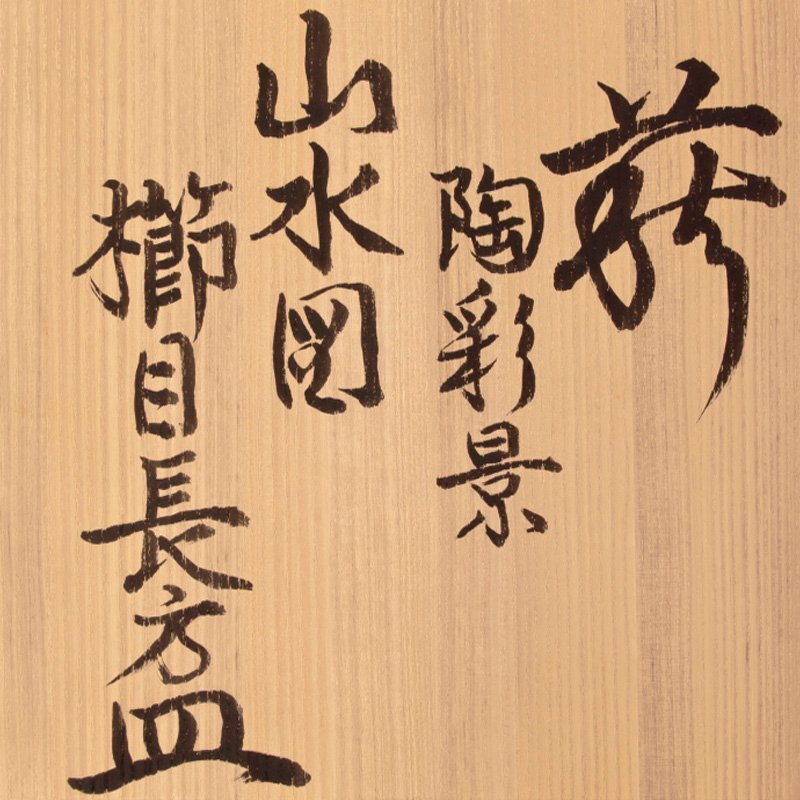 萩
陶彩景
山水図
櫛目長方皿